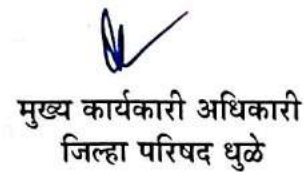 मुख्य कार्यकारी अधिकारी
जिल्हा परिषद धुळे